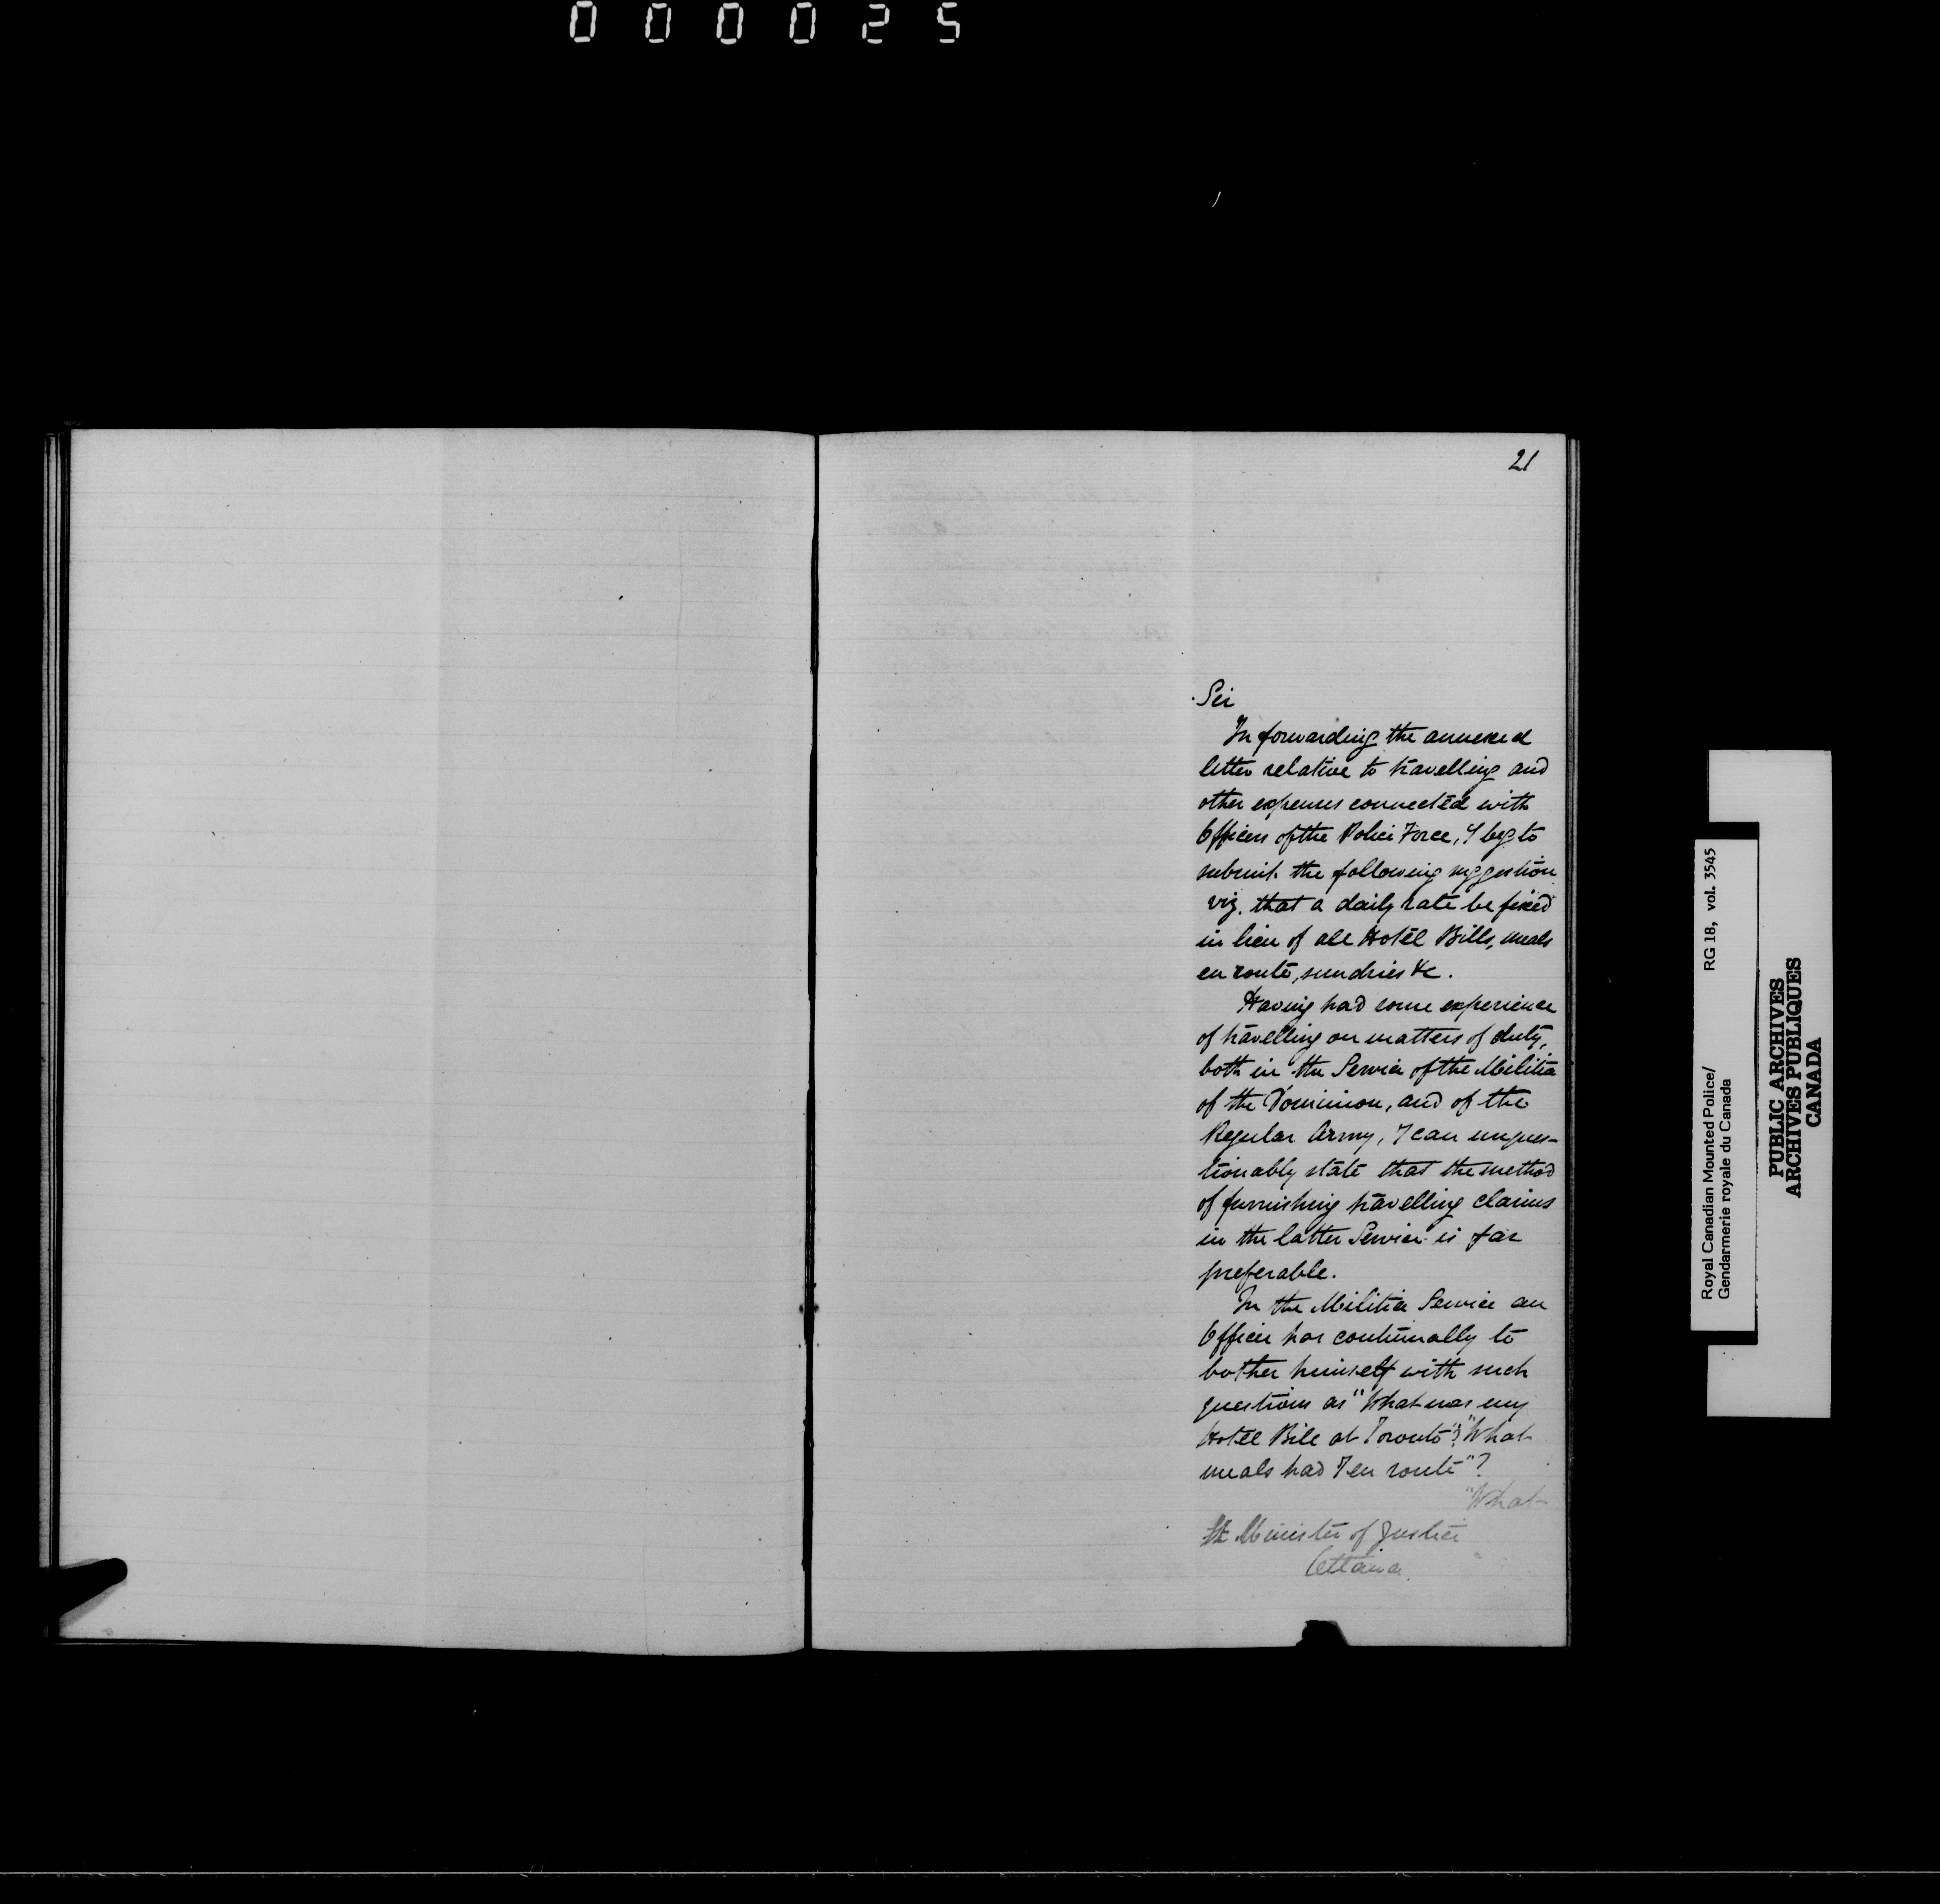 000025
21
Sir
In forwarding the annexed
letter relative to travelling and
other expenses connected with
Officers of the Police Force, I beg to
submit the following suggestion
viz. that a daily rate be fixed
in lieu of all Hotel Bills, meals
en route, sundries &c.
Having had some experience
of travelling on matters of duty,
both in the Service of the Militia
of the Dominion, and of the
Regular Army, I can unques-
tionably state that the method
of furnishing travelling claims
in the latter Service is far
preferable.
In the Militia Service an
Officer has continually to
bother himself with such
questions as "What was my
Hotel Bill at Toronto"? "What
meals had I en route"?
"What
Minister of Justice
Ottawa.
Royal Canadian Mounted Police/
Gendarmerie royale du Canada
RG 18, vol. 3545
PUBLIC ARCHIVES
ARCHIVES PUBLIQUES
CANADA